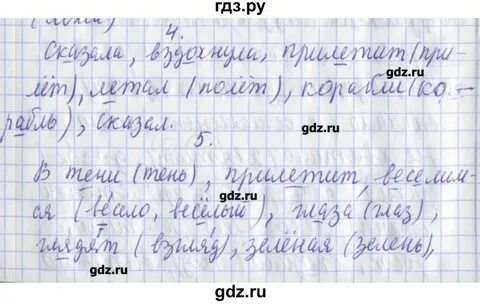 гдз.ру
4.
Сказала, вздохнула, прилетит (при-
лёт), летал (полёт), корабли (ко-
рабль), сказал.
5.
В тени (тень), прилетит, веселим-
ся (весело, весёлый), глаза (глаз),
глядят (взгляд), зелёная (зелень),
gdz.ru